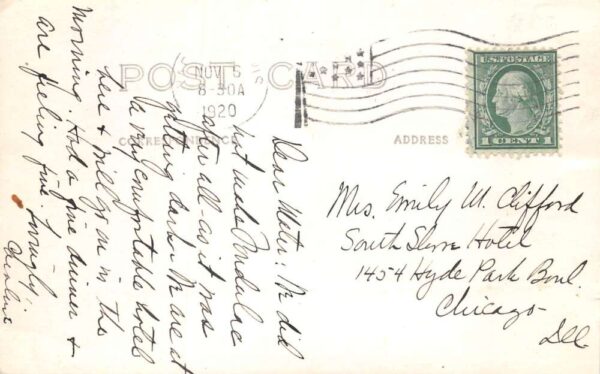 POST CARD
NOV 5
8-30A
1920
U.S. POSTAGE
1 CENT 1
CORRESPONDENCE
ADDRESS
Dear Mater: We did
not make
after all - as it was
getting dark. We are at
a very comfortable hotel
here & will go on in the
morning. Had a fine dinner &
are feeling fine. Lovingly,
Mrs. Emily M. Clifford
South Shore Hotel
1454 Hyde Park Boul.
Chicago
Ill